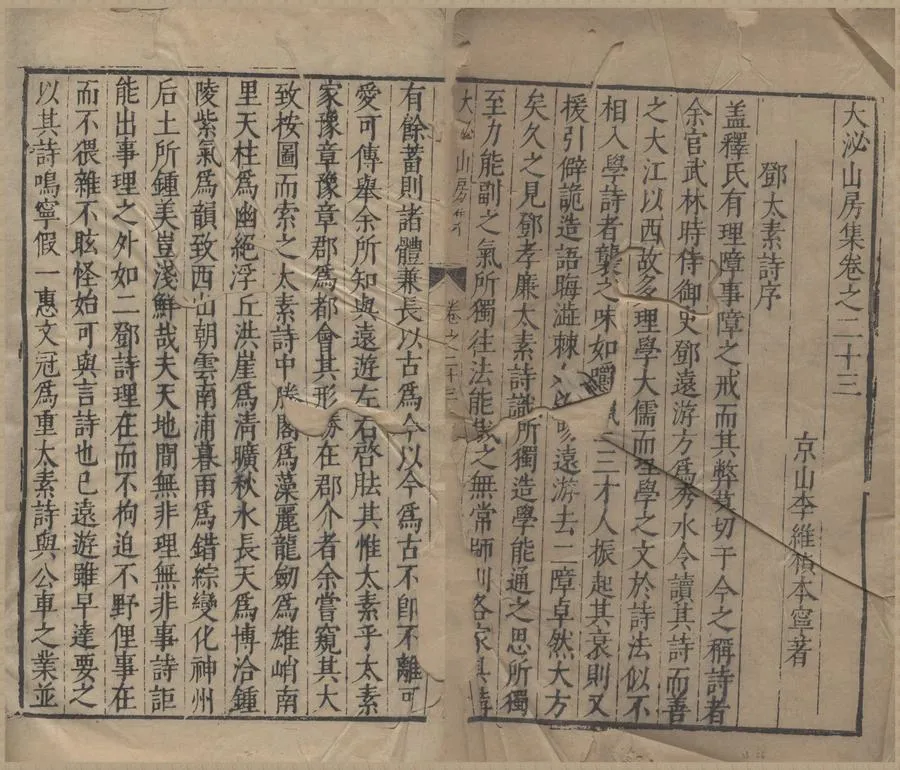 大泌山房集卷之二十三
京山李維楨本寧著
鄧太素詩序
盖釋氏有理障事障之戒而其弊莫切于今之稱詩者
余官武林時侍御史鄧遠游方爲秀水令讀其詩而善
之大江以西故多理學大儒而理學之文於詩法似不
相入學詩者襲之味如嚼 二三才人振起其衰則又
援引僻詭造語晦澁棘 遠游去二障卓然大方
矣久之見鄧孝廉太素詩識所獨造學能通之思所獨
至力能副之氣所獨往法能裁之無常師 各家具
大泌山房集
卷之二十三
有餘蓄則諸體兼長以古爲今以今爲古不即不離可
愛可傳舉余所知與遠遊左右啓胠其惟太素乎太素
家豫章豫章郡爲都會其形勝在郡介者余嘗窺其大
致按圖而索之太素詩中滕閣爲藻麗龍劒爲雄峭南
里天柱爲幽絕浮丘洪崖爲清曠秋水長天爲博洽鍾
陵紫氣爲韻致西山朝雲南浦暮雨爲錯綜變化神州
后土所鍾美豈淺鮮哉夫天地間無非理無非事詩詎
能出事理之外如二鄧詩理在而不拘迫不野俚事在
而不猥雜不眩怪始可與言詩也已遠遊雖早達要之
以其詩鳴寧假一惠文冠爲重太素詩與公車之業並